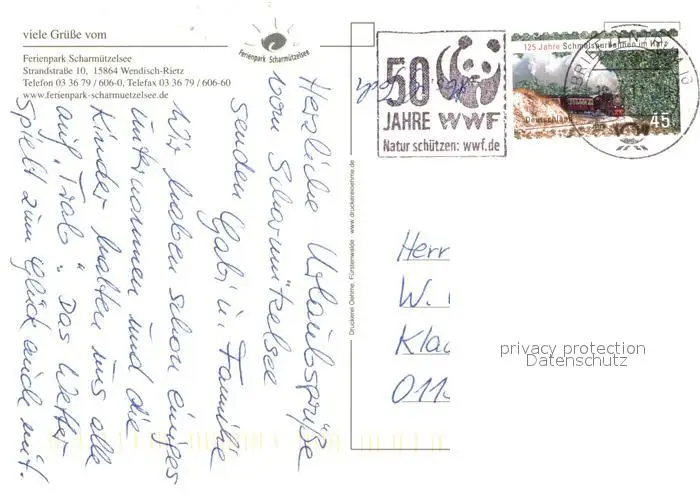 viele Grüße vom
Ferienpark Scharmützelsee
Ferienpark Scharmützelsee
Strandstraße 10, 15864 Wendisch-Rietz
Telefon 03 36 79 / 606-0, Telefax 03 36 79 / 606-60
www.ferienpark-scharmuetzelsee.de
Herzliche Urlaubsgrüße
vom Scharmützelsee
senden Gabi u. Familie
Wir haben schon einiges
unternommen und die
Kinder halten uns alle
auf Trab. Das Wetter
spielt zum Glück auch mit.
Druckerei Oehme, Fürstenwalde · www.druckereioehme.de
50
JAHRE WWF
Natur schützen: wwf.de
125 Jahre Schmalspurbahnen im Harz
Deutschland
45
BRIEFZENTRUM
Herr
W.
Kla
011
privacy protection
Datenschutz